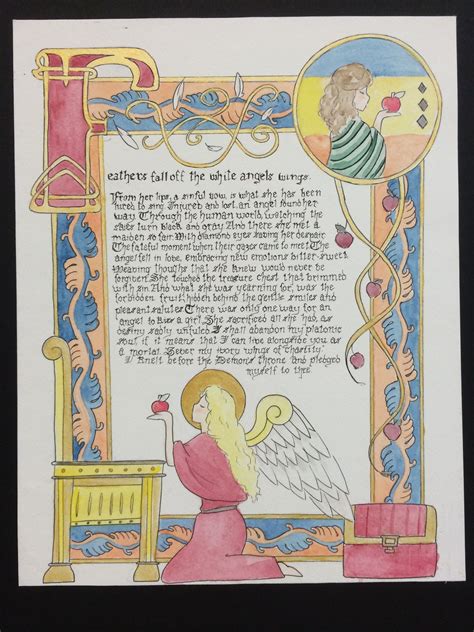 Feathers fall off the white angels wings.
From her lips, a sinful vow, is what she has been
hired to sing. Injured and lost, an angel found her
way. Through the human world, watching the
skies turn black and gray. And there she met a
maiden so fair. With diamond eyes saving her despair.
The fateful moment when their gazes came to meet. The
angel fell in love, embracing new emotions bitter-sweet.
Weaving thoughs that she knew would never be
forgiven. She touched the treasure chest that brimmed
with sin. And what she was yearning for, was the
forbidden fruit, hidden behind the gentle smiles and
pleasant salutes. There was only one way for an
angel to a girl. She sacrificed all she had, as
destiny sadly I shall abandon my platonic
soul, if it means that I can live alongside you as
a mortal. Sever my ivory wings of chastity.
I knelt before the Demons throne and pledged
myself to